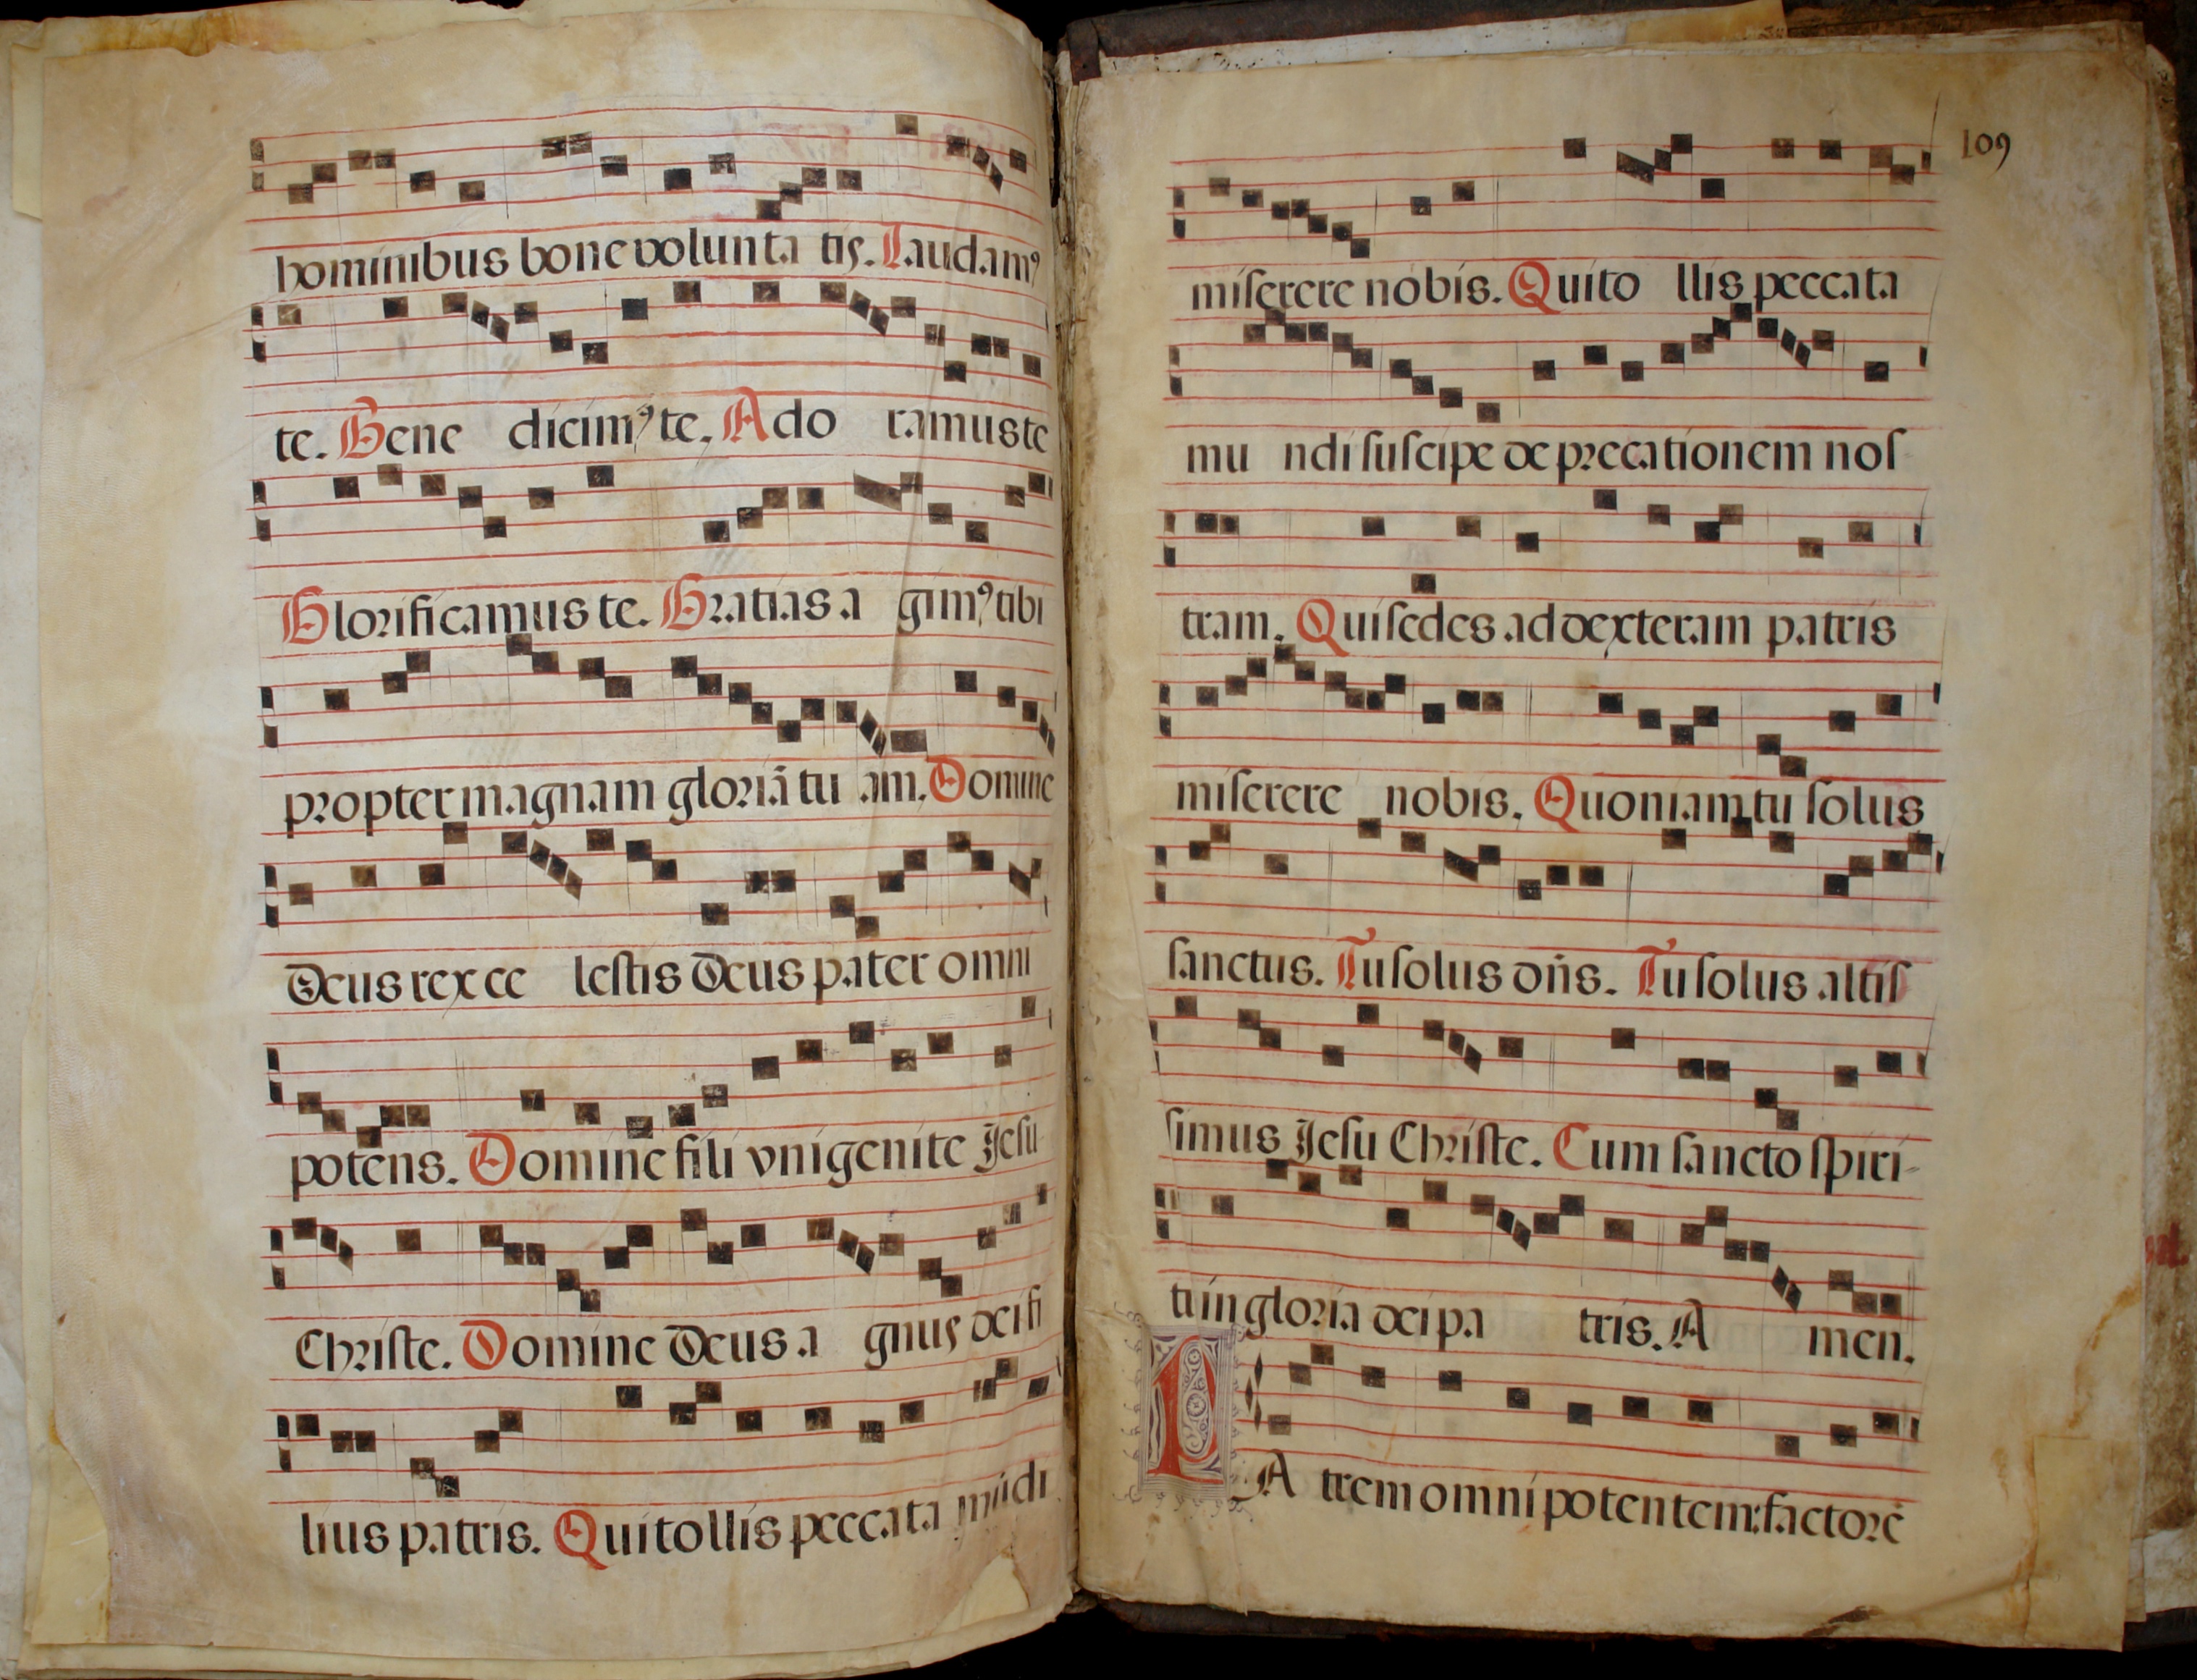 hominibus bone volunta tis. Laudamꝰ
te. Bene dicimꝰ te. Ado ramus te
Glorificamus te. Gratias a gimꝰ tibi
propter magnam gloriā tu am. Domine
Deus rex ce lestis Deus pater omni
potens. Domine fili vnigenite Jesu
Christe. Domine Deus a gnus dei fi
lius patris. Qui tollis peccata mūdi
109
miſerere nobis. Qui to llis peccata
mu ndi ſuſcipe de precationem noſ
tram. Qui ſedes ad dexteram patris
miſerere nobis. Quoniam tu ſolus
ſanctus. Tu ſolus dn̄s. Tu ſolus altiſ
ſimus Jeſu Chriſte. Cum ſancto ſpiri-
tu in gloria dei pa tris. A men.
PA trem omnipotentem: factorē